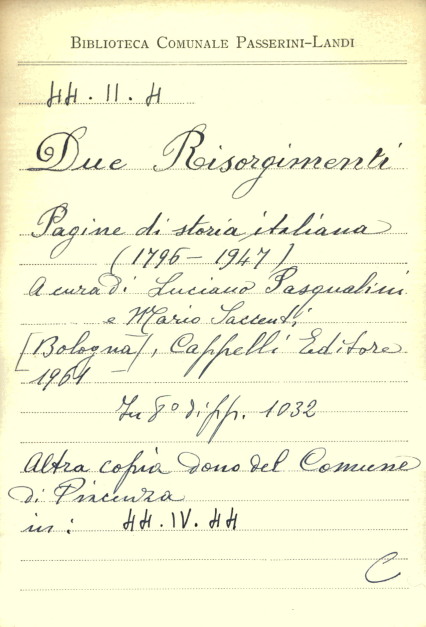 BIBLIOTECA COMUNALE PASSERINI-LANDI
44.II.4
Due Risorgimenti
Pagine di storia italiana
(1796-1947)
A cura di Luciano Pasqualini
e Mario Saccenti
[Bologna], Cappelli Editore
1961
In 8° di pp. 1032
Altra copia dono del Comune
di Piacenza
in: 44.IV.44
C